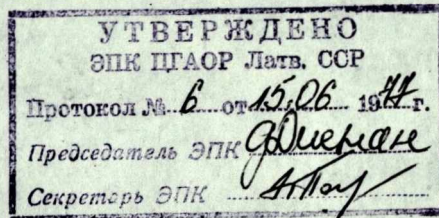 УТВЕРЖДЕНО
ЭПК ЦГАОР Латв. ССР
Протокол № 6 от 15.06 1977 г.
Председатель ЭПК
Секретарь ЭПК